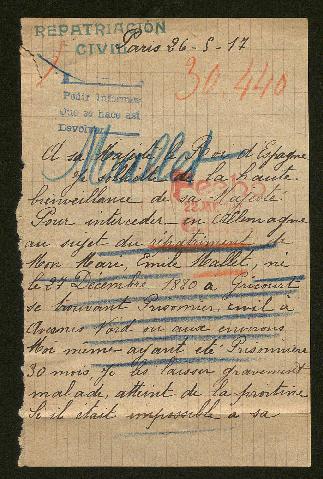 REPATRIACIÓN
CIVIL
Paris 26-5-17
30.440
Pedir informes
Que se hace así
Devolver
Mallet
A sa Majesté le Roi d'Espagne
Je sollicite de la haute
bienveillance de sa Majesté
Pour interceder en Allemagne
au sujet du rapatriment
Mon Mari Emile Mallet, né
le 27 Décembre 1880 a Gricourt
se trouvant Prisonnier civil à
Avesnes Nord ou aux environs
Moi meme ayant été Prisonnière
30 mois Je dûs laisser gravement
malade, atteint de la
Si il était impossible à sa